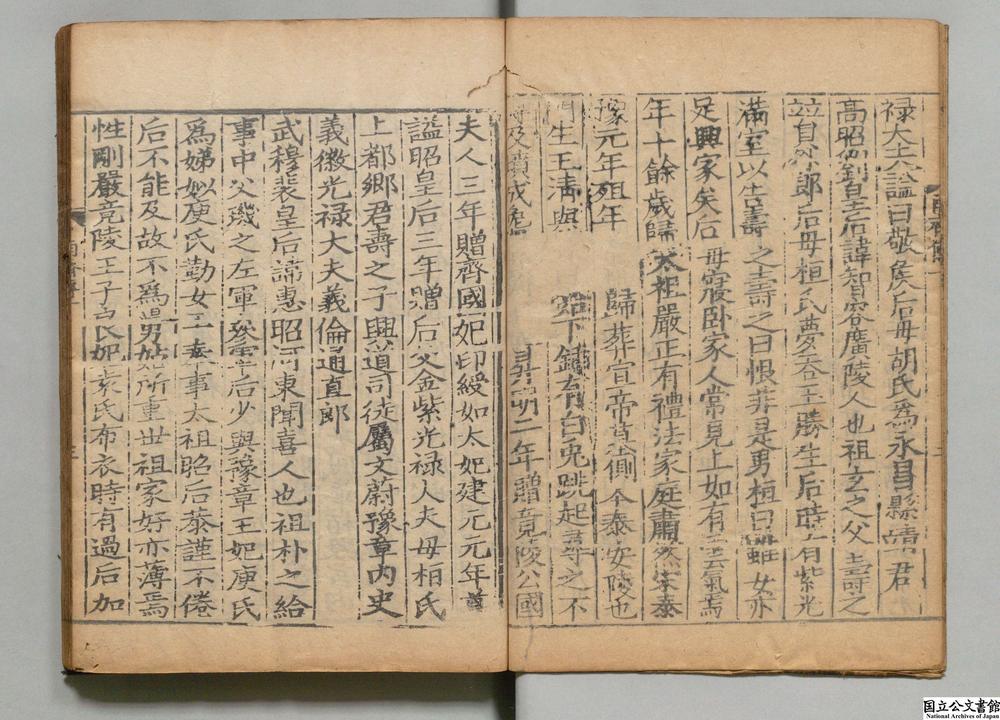 禄大夫謚曰敬侯后母胡氏爲永昌縣靖君
高昭劉皇后諱智容廣陵人也祖玄之父壽之
竝員外郎后母桓氏夢吞玉勝生后時有紫光
滿室以告壽之壽之曰恨非是男桓曰雖女亦
足興家矣后母寢臥家人常見上如有雲氣焉
年十餘歲歸太祖嚴正有禮法家庭肅然宋泰
豫元年殂年歸葬宣帝墓側今泰安陵也
門生王清與始下鍤有白兎跳起尋之不
得及墳成兎昇明二年贈竟陵公國
夫人三年贈齊國妃印綬如太妃建元元年尊
謚昭皇后三年贈后父金紫光禄大夫母柏氏
上都鄉君壽之子興道司徒屬文蔚豫章内史
義徽光禄大夫義倫通直郎
武穆裴皇后諱惠昭河東聞喜人也祖朴之給
事中父璣之左軍參軍后少與豫章王妃庾氏
爲娣姒庾氏勤女工奉事太祖昭后恭謹不倦
后不能及故不爲舅姑所重世祖家好亦薄焉
性剛嚴竟陵王子良妃袁氏布衣時有過后加
國立公文書館
National Archives of Japan